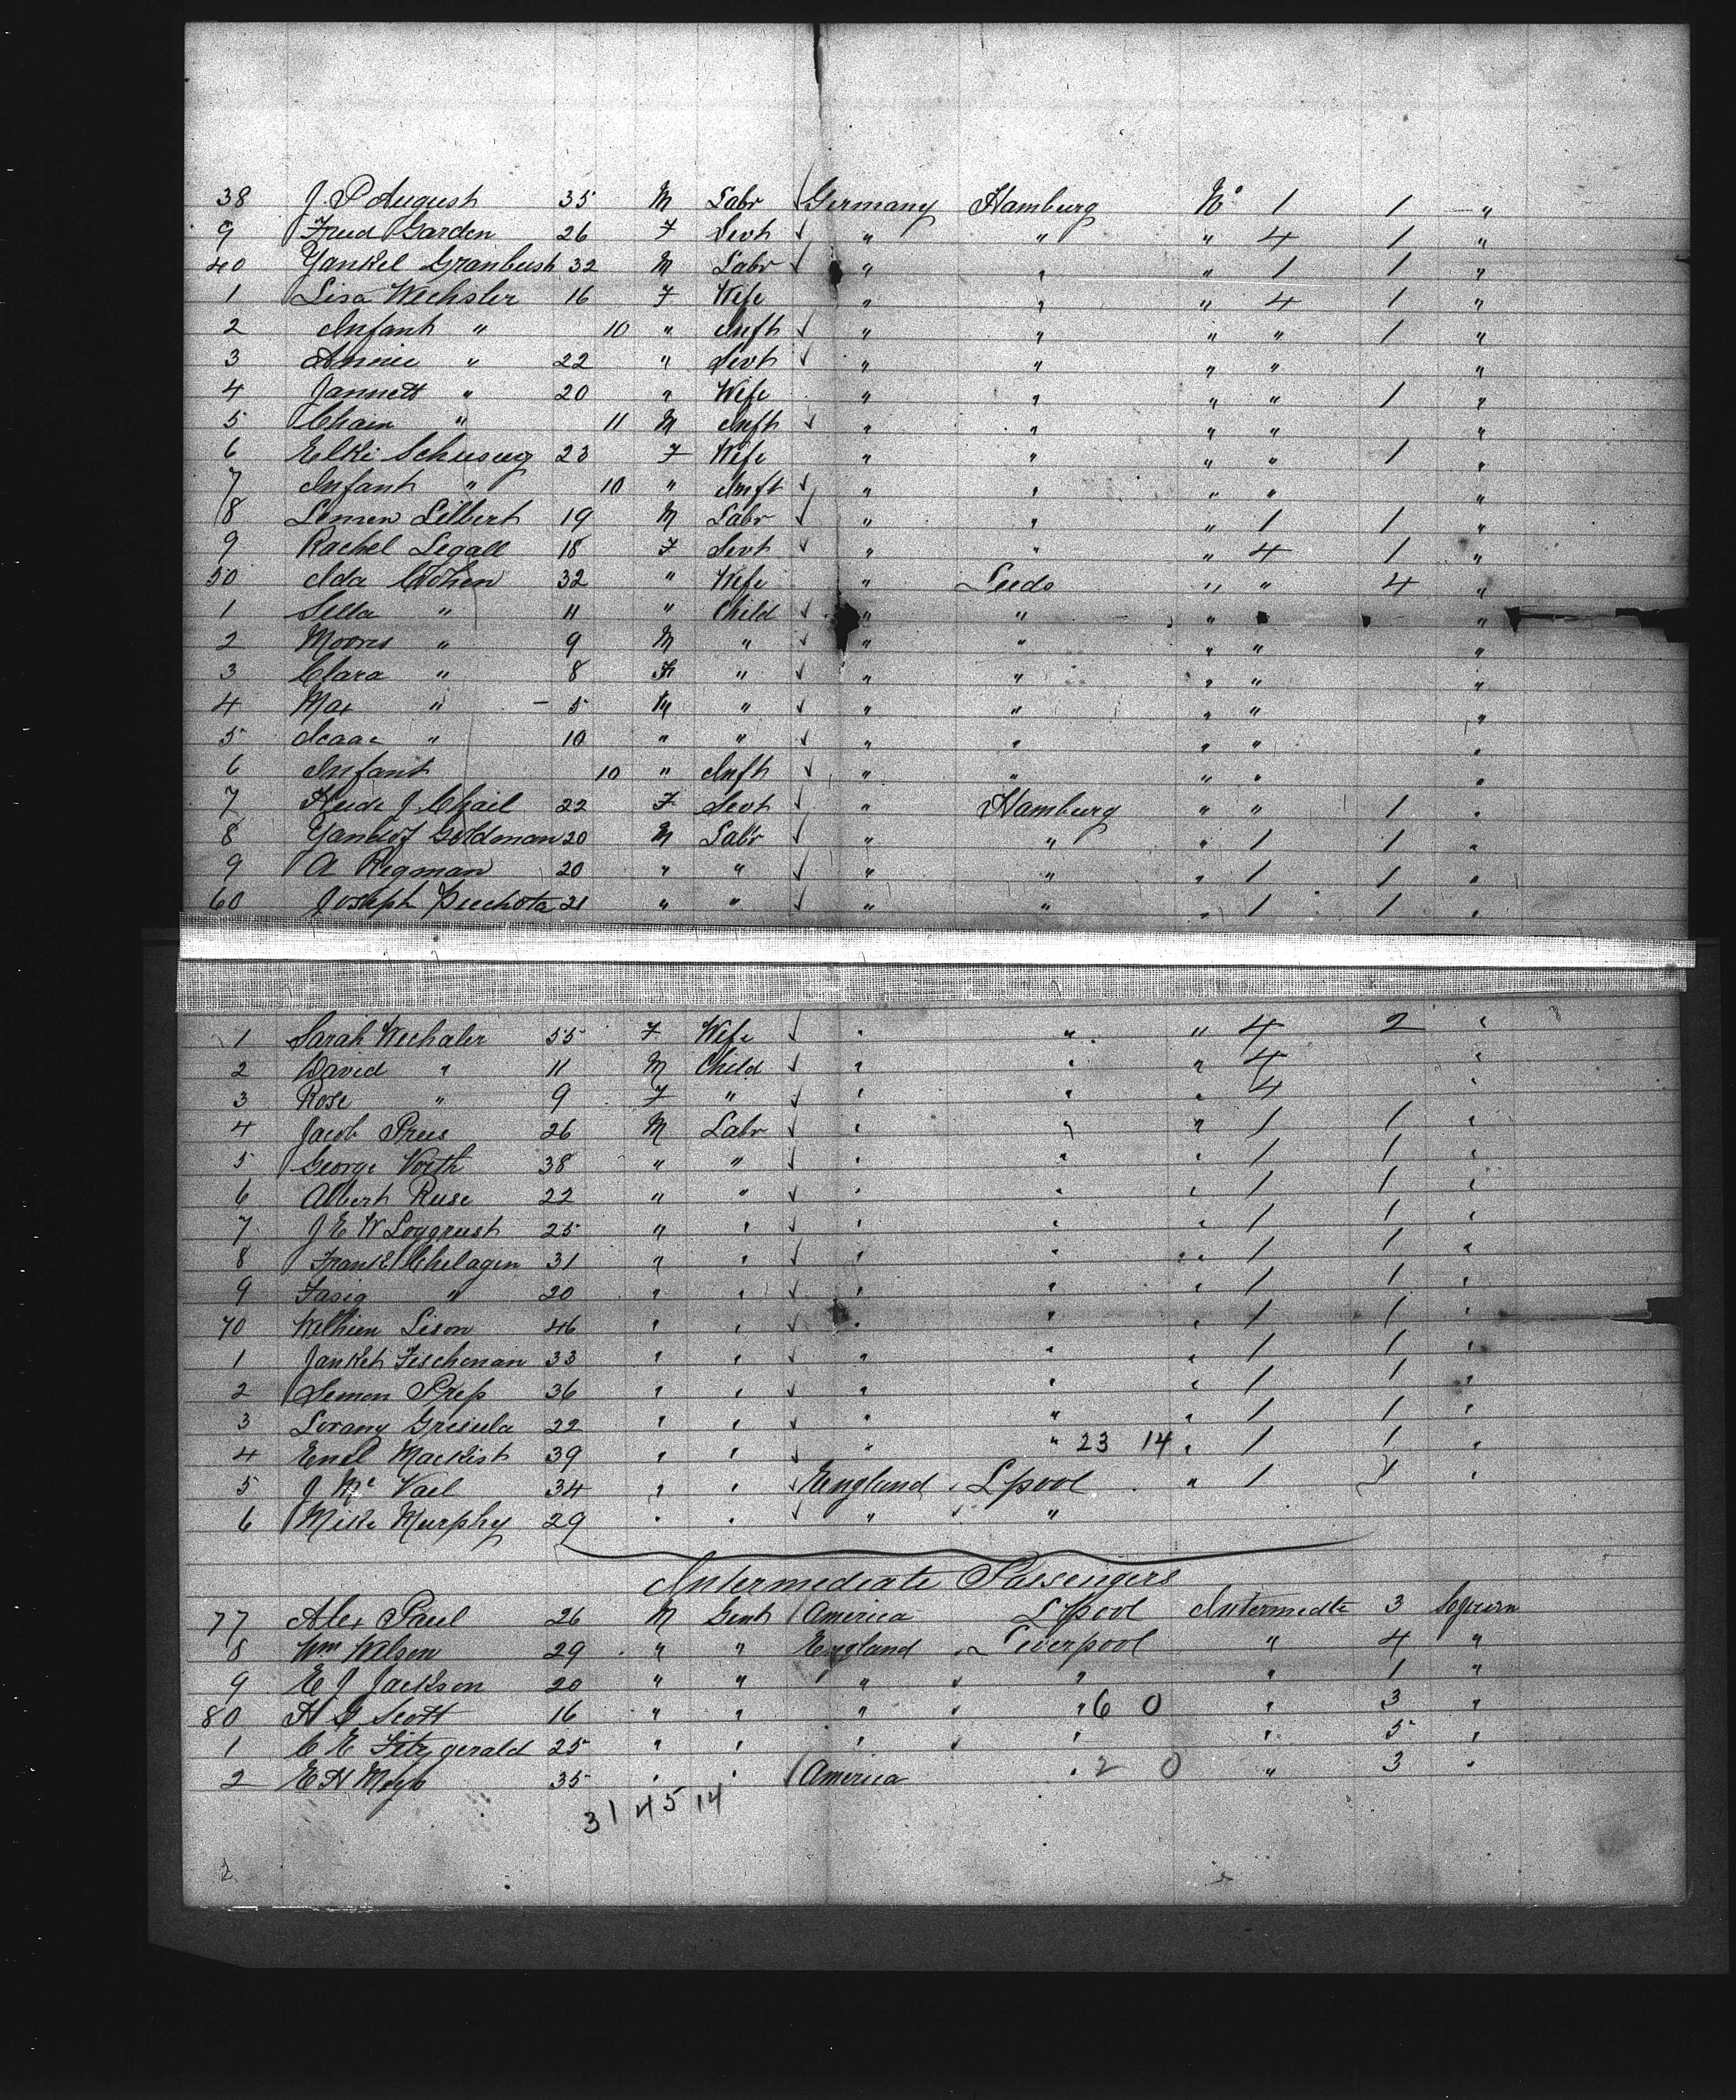 38 J. P August 35 M Labr Germany Hamburg No 1 1 "
9 Frud Garden 26 F Sevt " " " 4 1 "
40 Yankel Granbush 32 M Labr " " " 1 1 "
1 Lisa Wechsler 16 F Wife " " " 4 1 "
2 Infant " 10 " Inft " " " " 1 "
3 Annie " 22 " Sevt " " " " "
4 Jannett " 20 " Wife " " " " 1 "
5 Chain " 11 M Inft " " " " "
6 Elki 23 F Wife " " " " 1 "
7 Infant " 10 " Inft " " " " "
8 Lemen Silbert 19 M Labr " " " 1 1 "
9 Rachel Segall 18 F Sevt " " " 4 1 "
50 Ida Cohen 32 " Wife " Leeds " " 4 "
1 Sella " 11 " Child " " " "
2 Morris " 9 M " " " " " "
3 Clara " 8 F " " " " " "
4 Max " 5 M " " " " " "
5 Isaac " 10 " " " " " " "
6 Infant 10 " Inft " " " " "
7 J. Chail 22 F Sevt " Hamburg " " 1 "
8 Goldman 20 M Labr " " " 1 1 "
9 A Regman 20 " " " " " 1 1 "
60 Joseph Puchota 21 " " " " " 1 1 "
1 Sarah Wechsler 55 F Wife " " " 4 2 "
2 David " 11 M Child " " " 4 "
3 Rose " 9 F " " " " 4 "
4 Jacob Prees 26 M Labr " " " 1 1 "
5 George Voith 38 " " " " " 1 1 "
6 Albert Ruse 22 " " " " " 1 1 "
7 J E W Loggrust 25 " " " " " 1 1 "
8 Frank Chelagin 31 " " " " " 1 1 "
9 Fasig " 20 " " " " " 1 1 "
70 Leson 46 " " " " " 1 1 "
1 Janket Fischman 33 " " " " " 1 1 "
2 Semon Press 36 " " " " " 1 1 "
3 Lorany Gresula 22 " " " " " 1 1 "
4 Enel Mackish 39 " " " " 23 14 " 1 1 "
5 J Mc Vael 34 " " England L'pool " 1 1 "
6 Mike Murphy 29 " " " "
Intermediate Passengers
77 Alex Paul 26 M Gent America L'pool Intermedte 3 
8 Wm Wilson 29 " " England Liverpool " 4 "
9 E J Jackson 20 " " " " " 1 "
80 H G Scott 16 " " " " 6 0 " 3 "
1 C E Fitzgerald 25 " " " " " 5 "
2 E H Mayo 35 " " America " 2 0 " 3 "
31 45 14